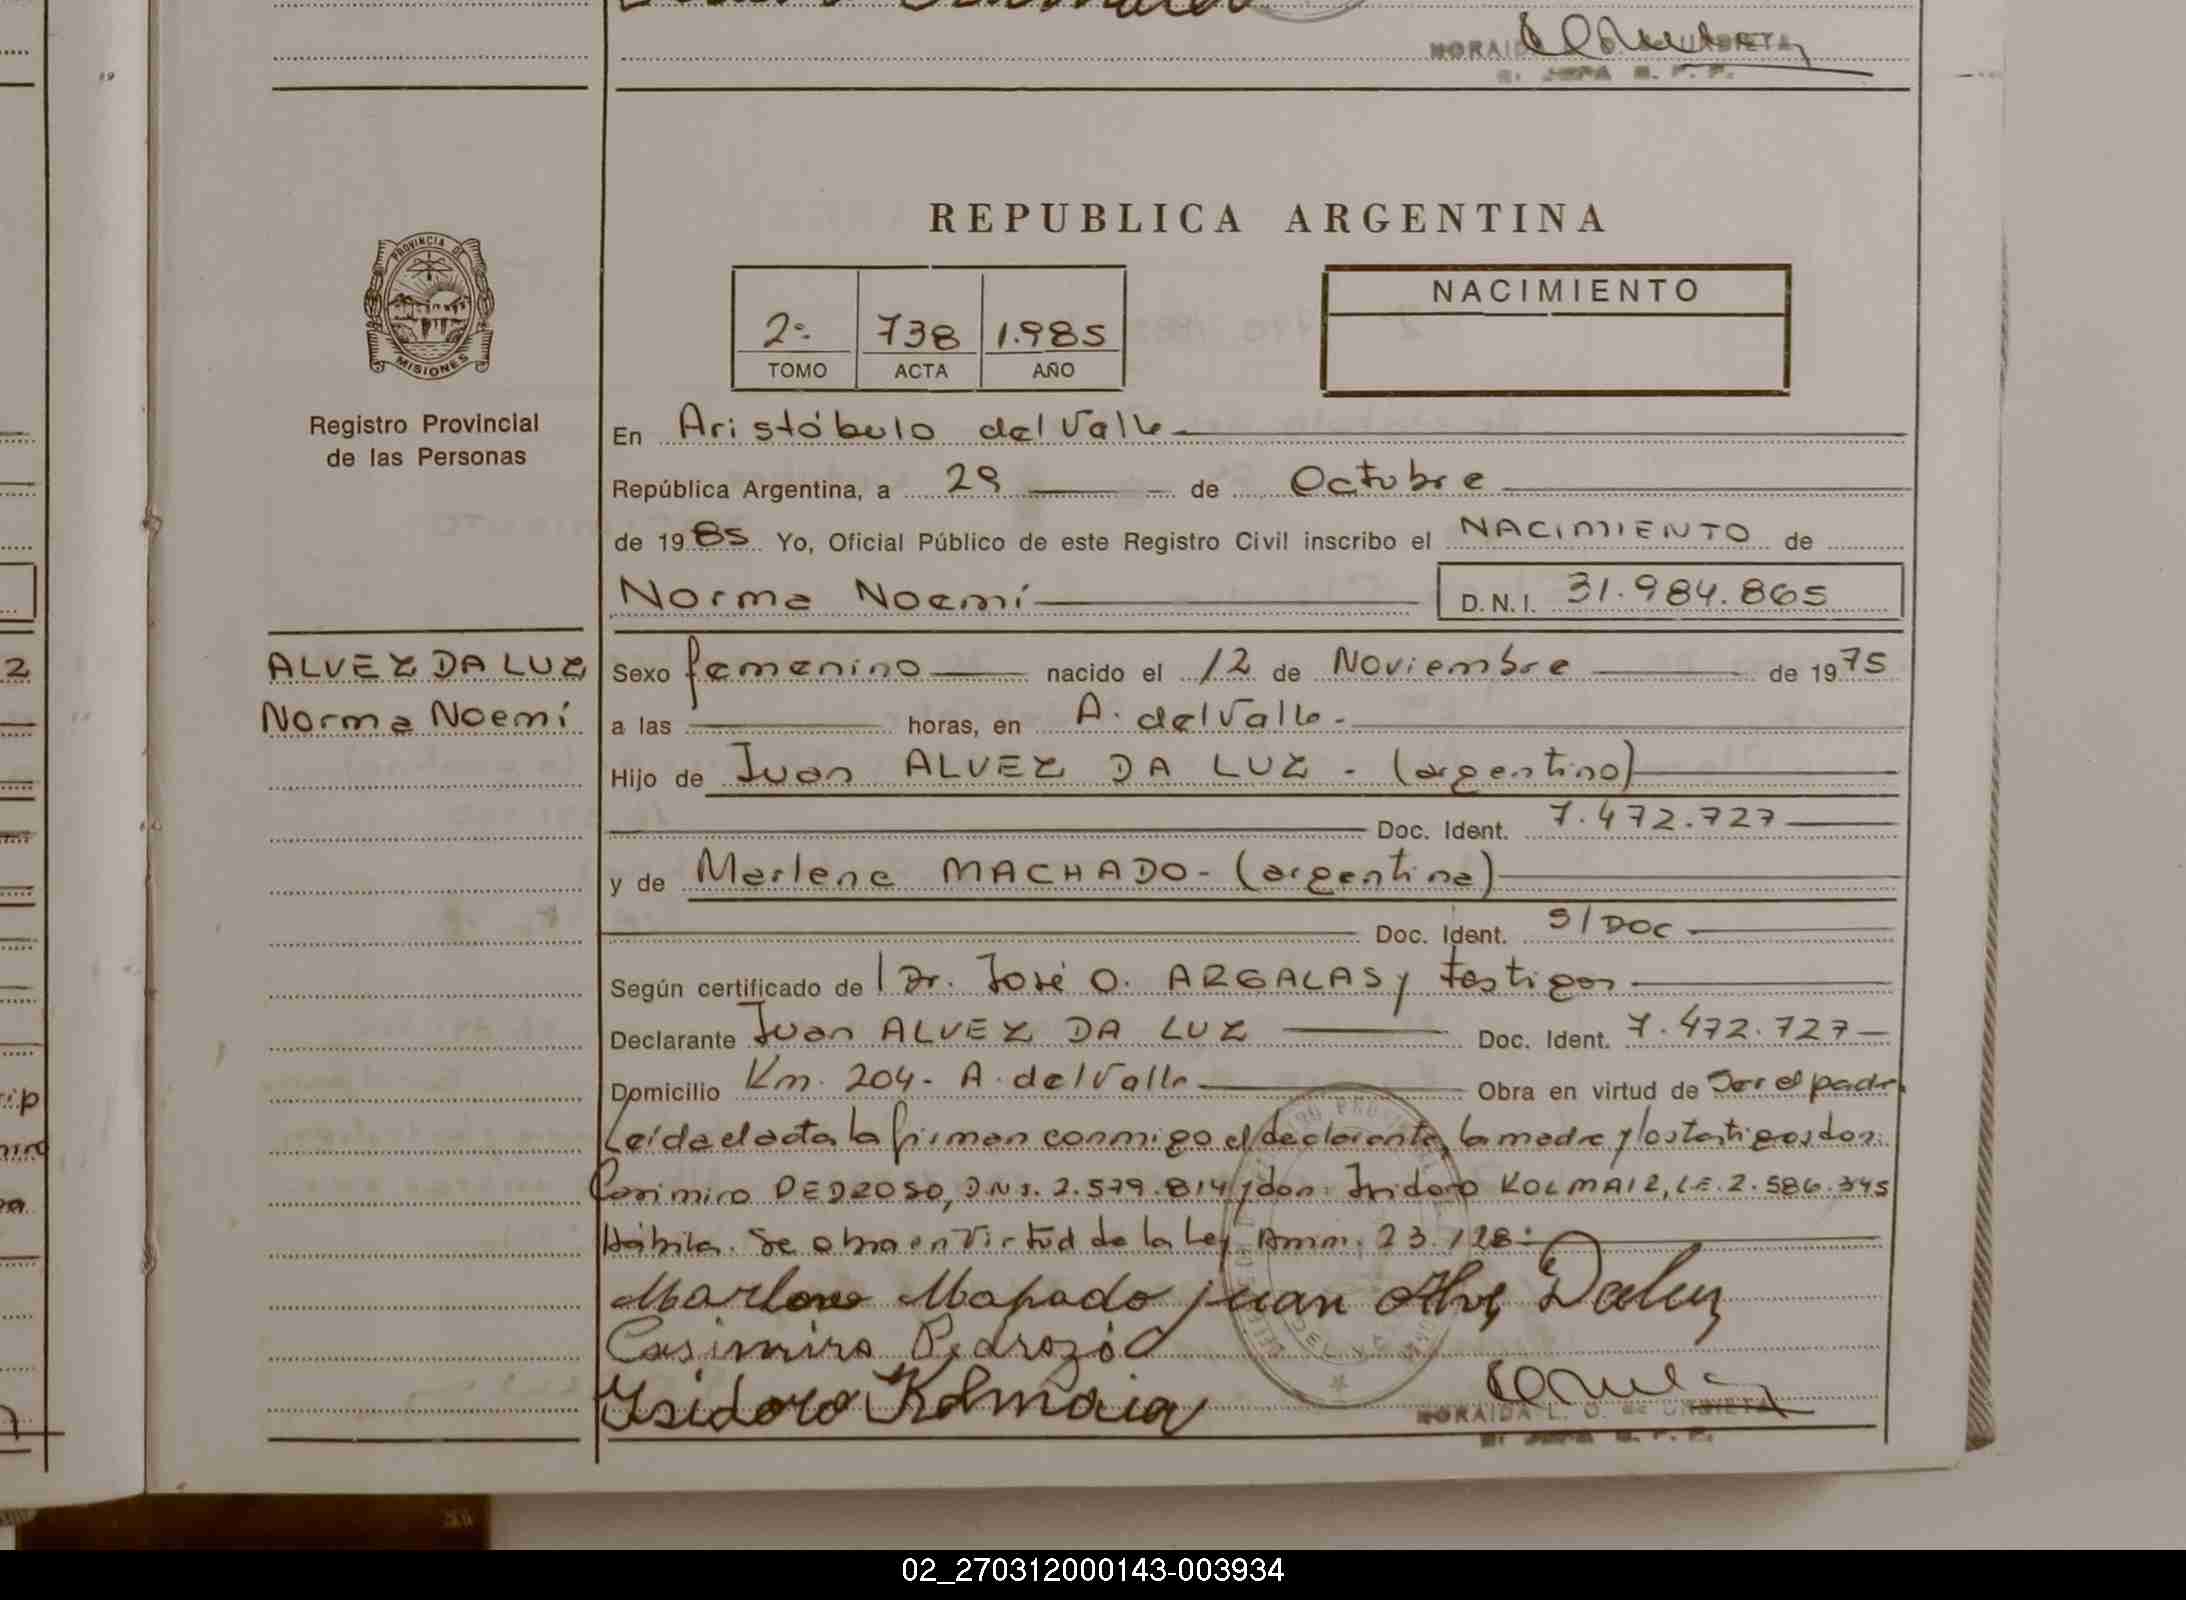 REPUBLICA ARGENTINA
PROVINCIA DE
MISIONES
Registro Provincial
de las Personas
2º 738 1.985
TOMO ACTA AÑO
NACIMIENTO
En Aristóbulo del Valle
República Argentina, a 29 de Octubre
de 1985 Yo, Oficial Público de este Registro Civil inscribo el NACIMIENTO de
Norma Noemí D.N.I. 31.984.865
ALVEZ DA LUZ
Norma Noemí
Sexo femenino nacido el 12 de Noviembre de 1975
a las horas, en A. del Valle.
Hijo de Juan ALVEZ DA LUZ - (argentino)
Doc. Ident. 7.472.727
y de Marlene MACHADO - (argentina)
Doc. Ident. S/DOC
Según certificado de Dr. José O. ARGALAS y testigos
Declarante Juan ALVEZ DA LUZ Doc. Ident. 7.472.727
Domicilio Km. 204 - A. del Valle Obra en virtud de Ser el padre
Leída el acta la firman conmigo el declarante, la madre y los testigos don:
Casimiro PEDROSO, DNI. 2.579.814 y don: Isidoro KOLMAIZ, L.E. 2.586.345
Hábiles. Se obra en Virtud de la Ley Amn. 23.128:
Marlene Mapado juan Alve Daluz
Casimiro Pedrozo
Isidoro Kolmaia
NORAIDA L. O. de URBIETA
02_270312000143-003934